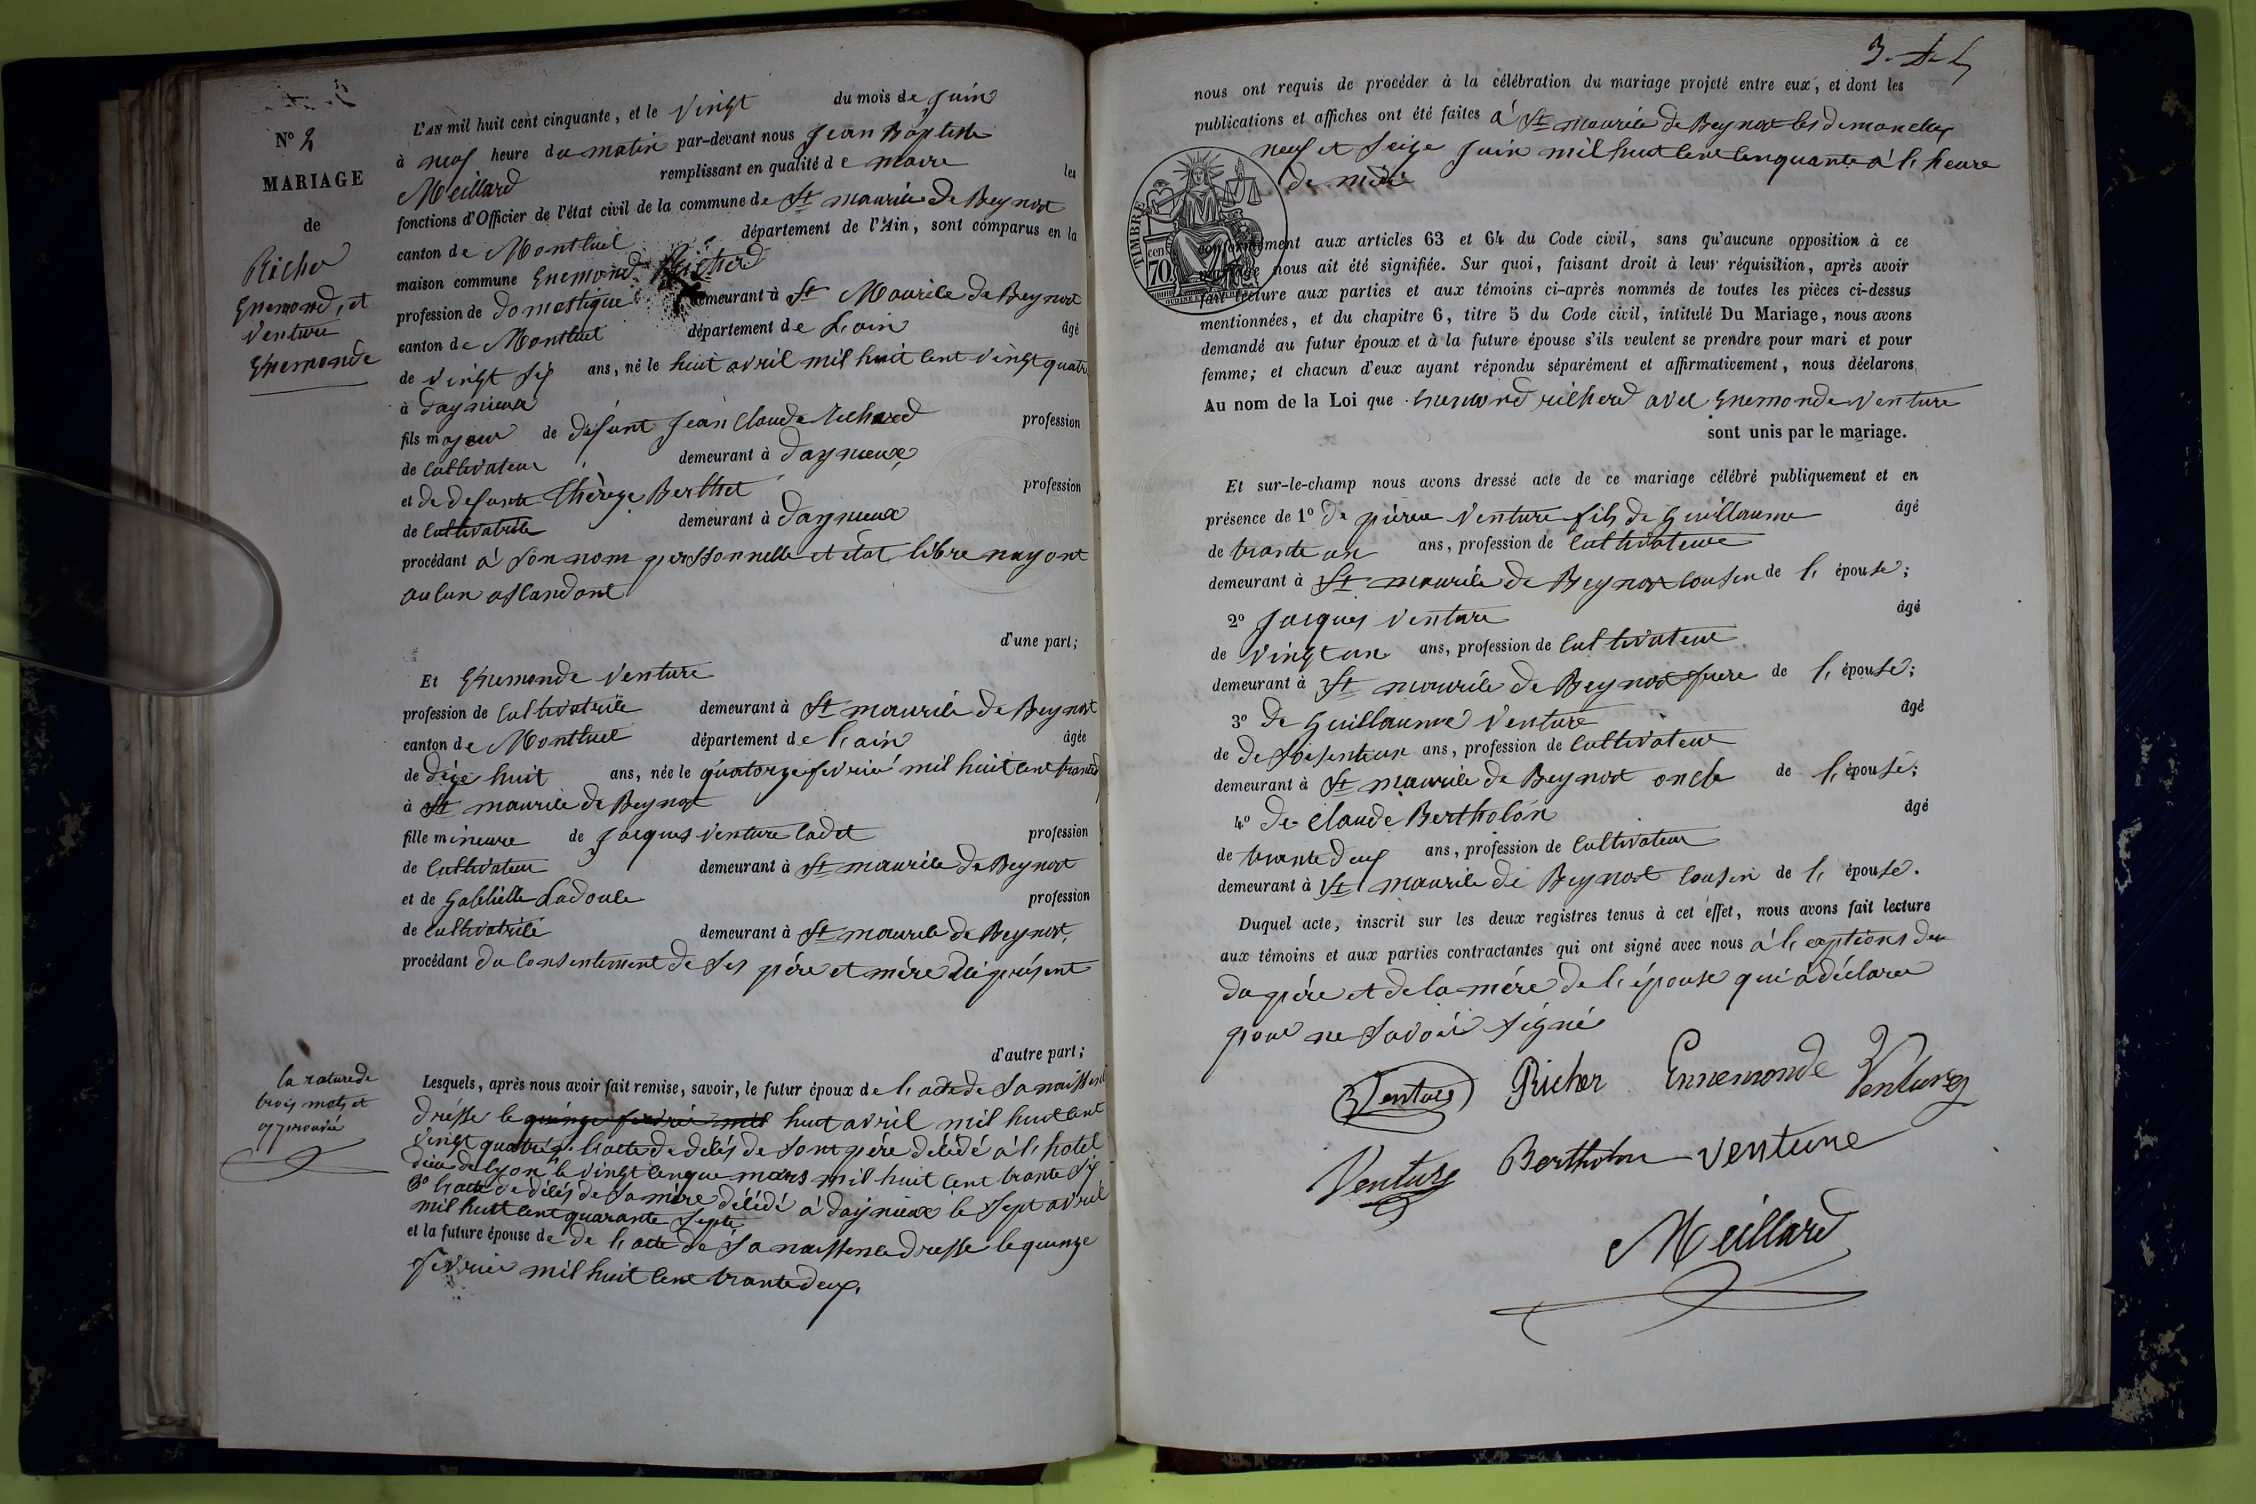 N° 2
MARIAGE
de
Richer
Enemond, et
Venture
Enemonde
L'AN mil huit cent cinquante, et le vingt du mois de Juin
à neuf heure du matin par-devant nous Jean Baptiste
Meillard remplissant en qualité de maire les
fonctions d'Officier de l'état civil de la commune de St maurice de Beynost
canton de Montluel département de l'Ain, sont comparus en la
maison commune Enemond Richerd
profession de domestique demeurant à St Maurice de Beynost
canton de Montluel département de L'ain âgé
de vingt six ans, né le huit avril mil huit cent vingt quatre
à dagnieux
fils majeur de défunt Jean Claude richerd profession
de cultivateur demeurant à dagnieux
et de defunte thèreze Berthet profession
de cultivatrice demeurant à dagnieux
procédant à son nom personnelle et état libre nayant
aucun assandant
d'une part;
Et Enemonde Venture
profession de cultivatrice demeurant à St maurice de Beynost
canton de Montluel département de l'ain âgée
de dixe huit ans, née le quatorze fevrier mil huit cent trante d
à St maurice de Beynost
fille mineure de Jacques Venture Cadet profession
de cultivateur demeurant à St maurice de Beynost
et de Gabrielle Ladoule profession
de cultivatrice demeurant à St maurice de Beynost,
procédant du consentement de ses père et mère ici présent
d'autre part;
la rature de
trois mots et
approuvée
Lesquels, après nous avoir fait remise, savoir, le futur époux de l'acte de sa naissence
drésse le quinze fevrié mil huit avril mil huit cent
vingt quatre, l'acte de délés de sont père délédé à l'hotel
dieu de lyon le vingt cenque mars mil huit cent trante six
3° l'acte de délés de sa mère délédé à dagnieux le sept avril
mil huit cent quarante septe
et la future épouse de de l'acte de sa naissence dresse le quinze
fevrier mil huit cent trante deux.
nous ont requis de procéder à la célébration du mariage projeté entre eux, et dont les
publications et affiches ont été faites à St maurice de Beynost les dimanches
neuf et seize Juin mil huit cent cenquante à l'heure
de midi
TIMBRE
70 cen
conformément aux articles 63 et 64 du Code civil, sans qu'aucune opposition à ce
mariage nous ait été signifiée. Sur quoi, faisant droit à leur réquisition, après avoir
fait lecture aux parties et aux témoins ci-après nommés de toutes les pièces ci-dessus
mentionnées, et du chapitre 6, titre 5 du Code civil, intitulé Du Mariage, nous avons
demandé au futur époux et à la future épouse s'ils veulent se prendre pour mari et pour
femme; et chacun d'eux ayant répondu séparément et affirmativement, nous déclarons
Au nom de la Loi que Enemond richerd avec Enemonde Venture
sont unis par le mariage.
Et sur-le-champ nous avons dressé acte de ce mariage célébré publiquement et en
présence de 1° de pierre Venture fils de Guillaume âgé
de trante un ans, profession de cultivateure
demeurant à St maurice de Beynost cousin de l'épouse;
2° Jacques Venture âgé
de vingt un ans, profession de cultivateur
demeurant à St maurice de Beynost frere de l'épouse;
3° de Guillaume Venture âgé
de de soisente un ans, profession de cultivateur
demeurant à St maurice de Beynost oncle de l'épouse;
4° de claude Bertholon âgé
de trante deux ans, profession de cultivateur
demeurant à St maurice de Beynost cousin de l'épouse.
Duquel acte, inscrit sur les deux registres tenus à cet effet, nous avons fait lecture
aux témoins et aux parties contractantes qui ont signé avec nous à l'exptions deu
du père et de la mére de l'épouse qui à déclarer
pour ne savoir signé
Venture Richer Ennemonde Venture
Venture Bertholon venture
Meillard